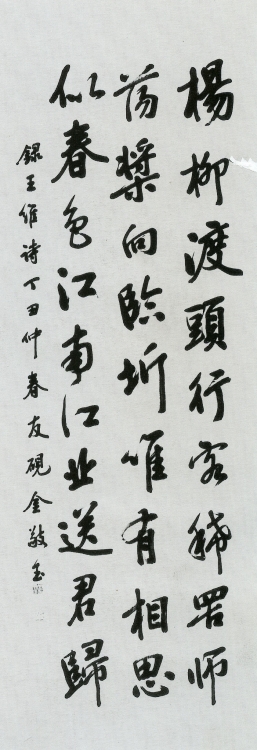 楊柳渡頭行客稀罟师
荡槳向臨圻唯有相思
似春色江南江北送君歸
録王维诗丁丑仲春友硯金敬